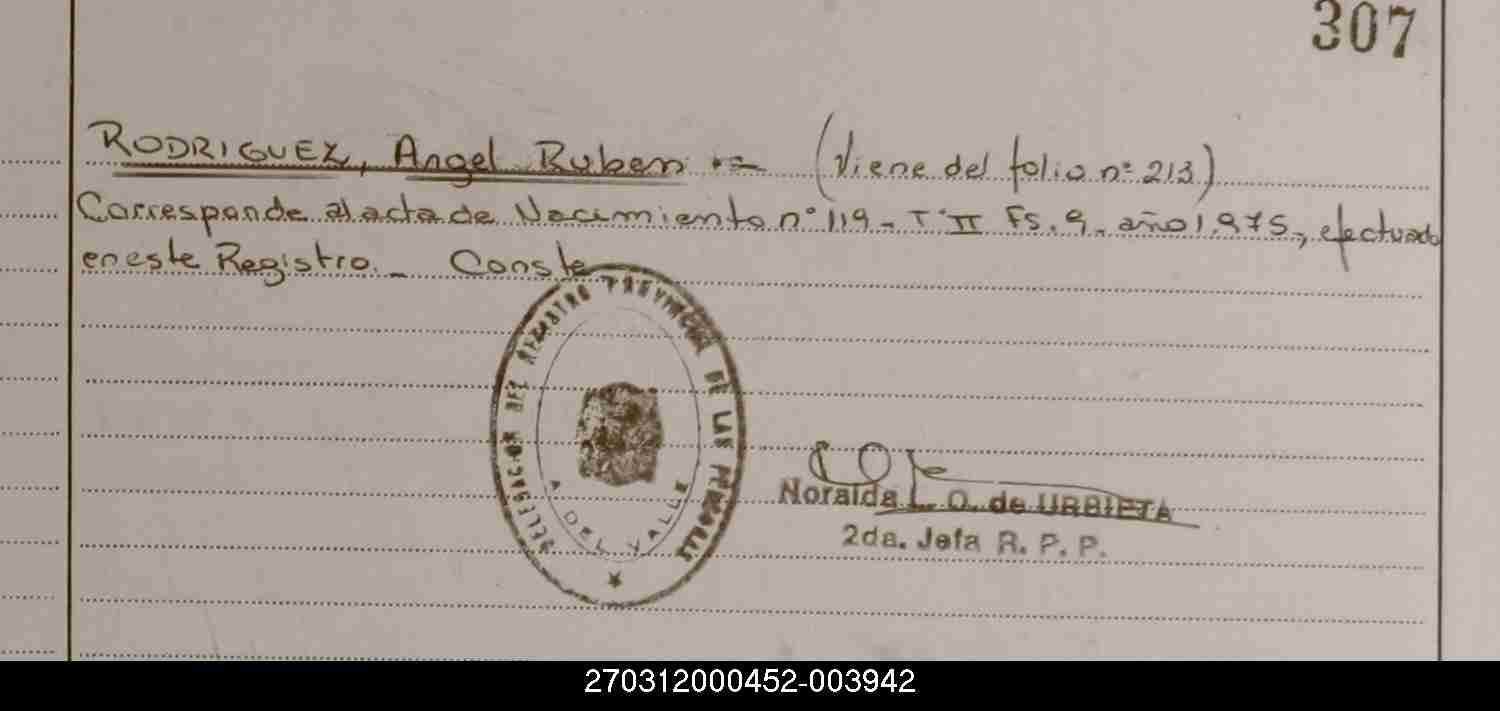 307
RODRIGUEZ, Angel Ruben.= (Viene del folio nº 213)
Corresponde al acta de Nacimiento nº 119 - Tº II Fs. 9. año 1.975, efectuado
en este Registro._ Conste
DELEGACION DEL REGISTRO PROVINCIAL DE LAS PERSONAS
A DEL VALLE
Noralda L. O. de URBIETA
2da. Jefa R. P. P.
270312000452-003942